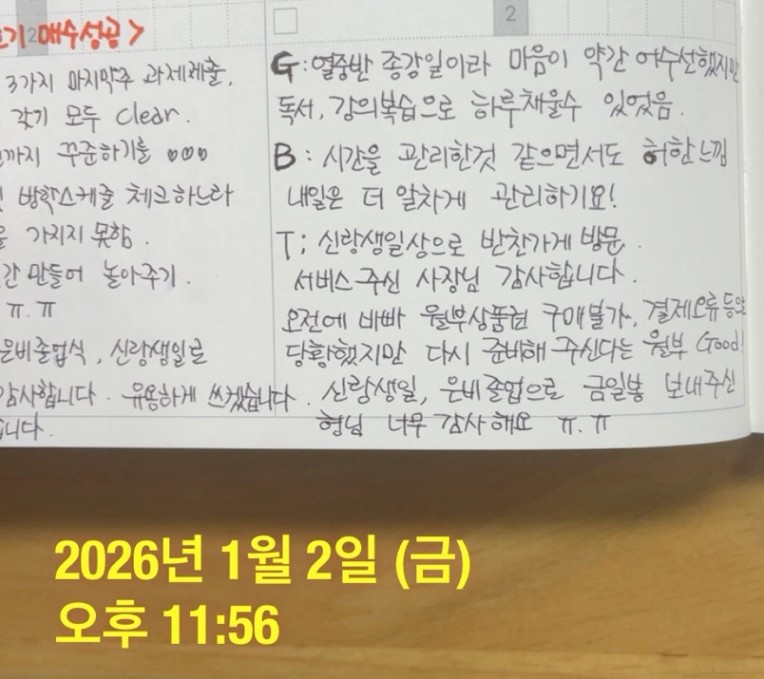 매수성공>
3가지 마지막주 과제제출,
갖기 모두 clear.
까지 꾸준하기를
방학스케줄 체크하느라
가지지 못함.
만들어 놀아주기.
ㅠ.ㅠ
은비졸업식, 신랑생일로
감사합니다. 유용하게 쓰겠습니다.
니다.
2
G: 열중반 종강일이라 마음이 약간 어수선했지만
독서, 강의복습으로 하루채울수 있었음.
B: 시간을 관리한것 같으면서도 허한느낌
내일은 더 알차게 관리하기요!
T; 신랑생일상으로 반찬가게 방문.
서비스주신 사장님 감사합니다.
오전에 바빠 월부상품권 구매불가, 결제오류등으
당황했지만 다시 준비해 주신다는 월부 Good!
신랑생일, 은비졸업으로 금일봉 보내주신
형님 너무 감사해요 ㅠ.ㅠ
2026년 1월 2일 (금)
오후 11:56